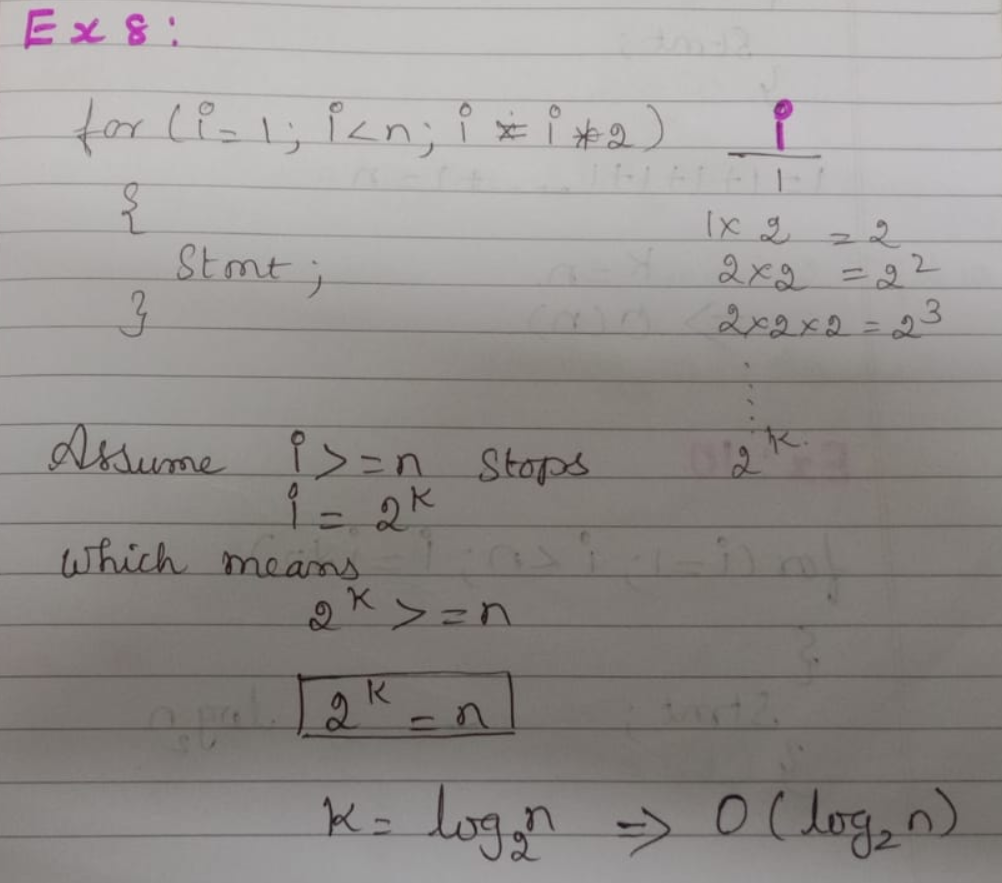 Ex 8:
for (i = 1; i < n; i = i * 2)
i
1
{
1 x 2 = 2
Stmt;
2 x 2 = 2²
}
2 x 2 x 2 = 2³
2ᵏ
Assume i >= n stops
i = 2ᵏ
which means
2ᵏ >= n
2ᵏ = n
k = log₂n => O(log₂n)